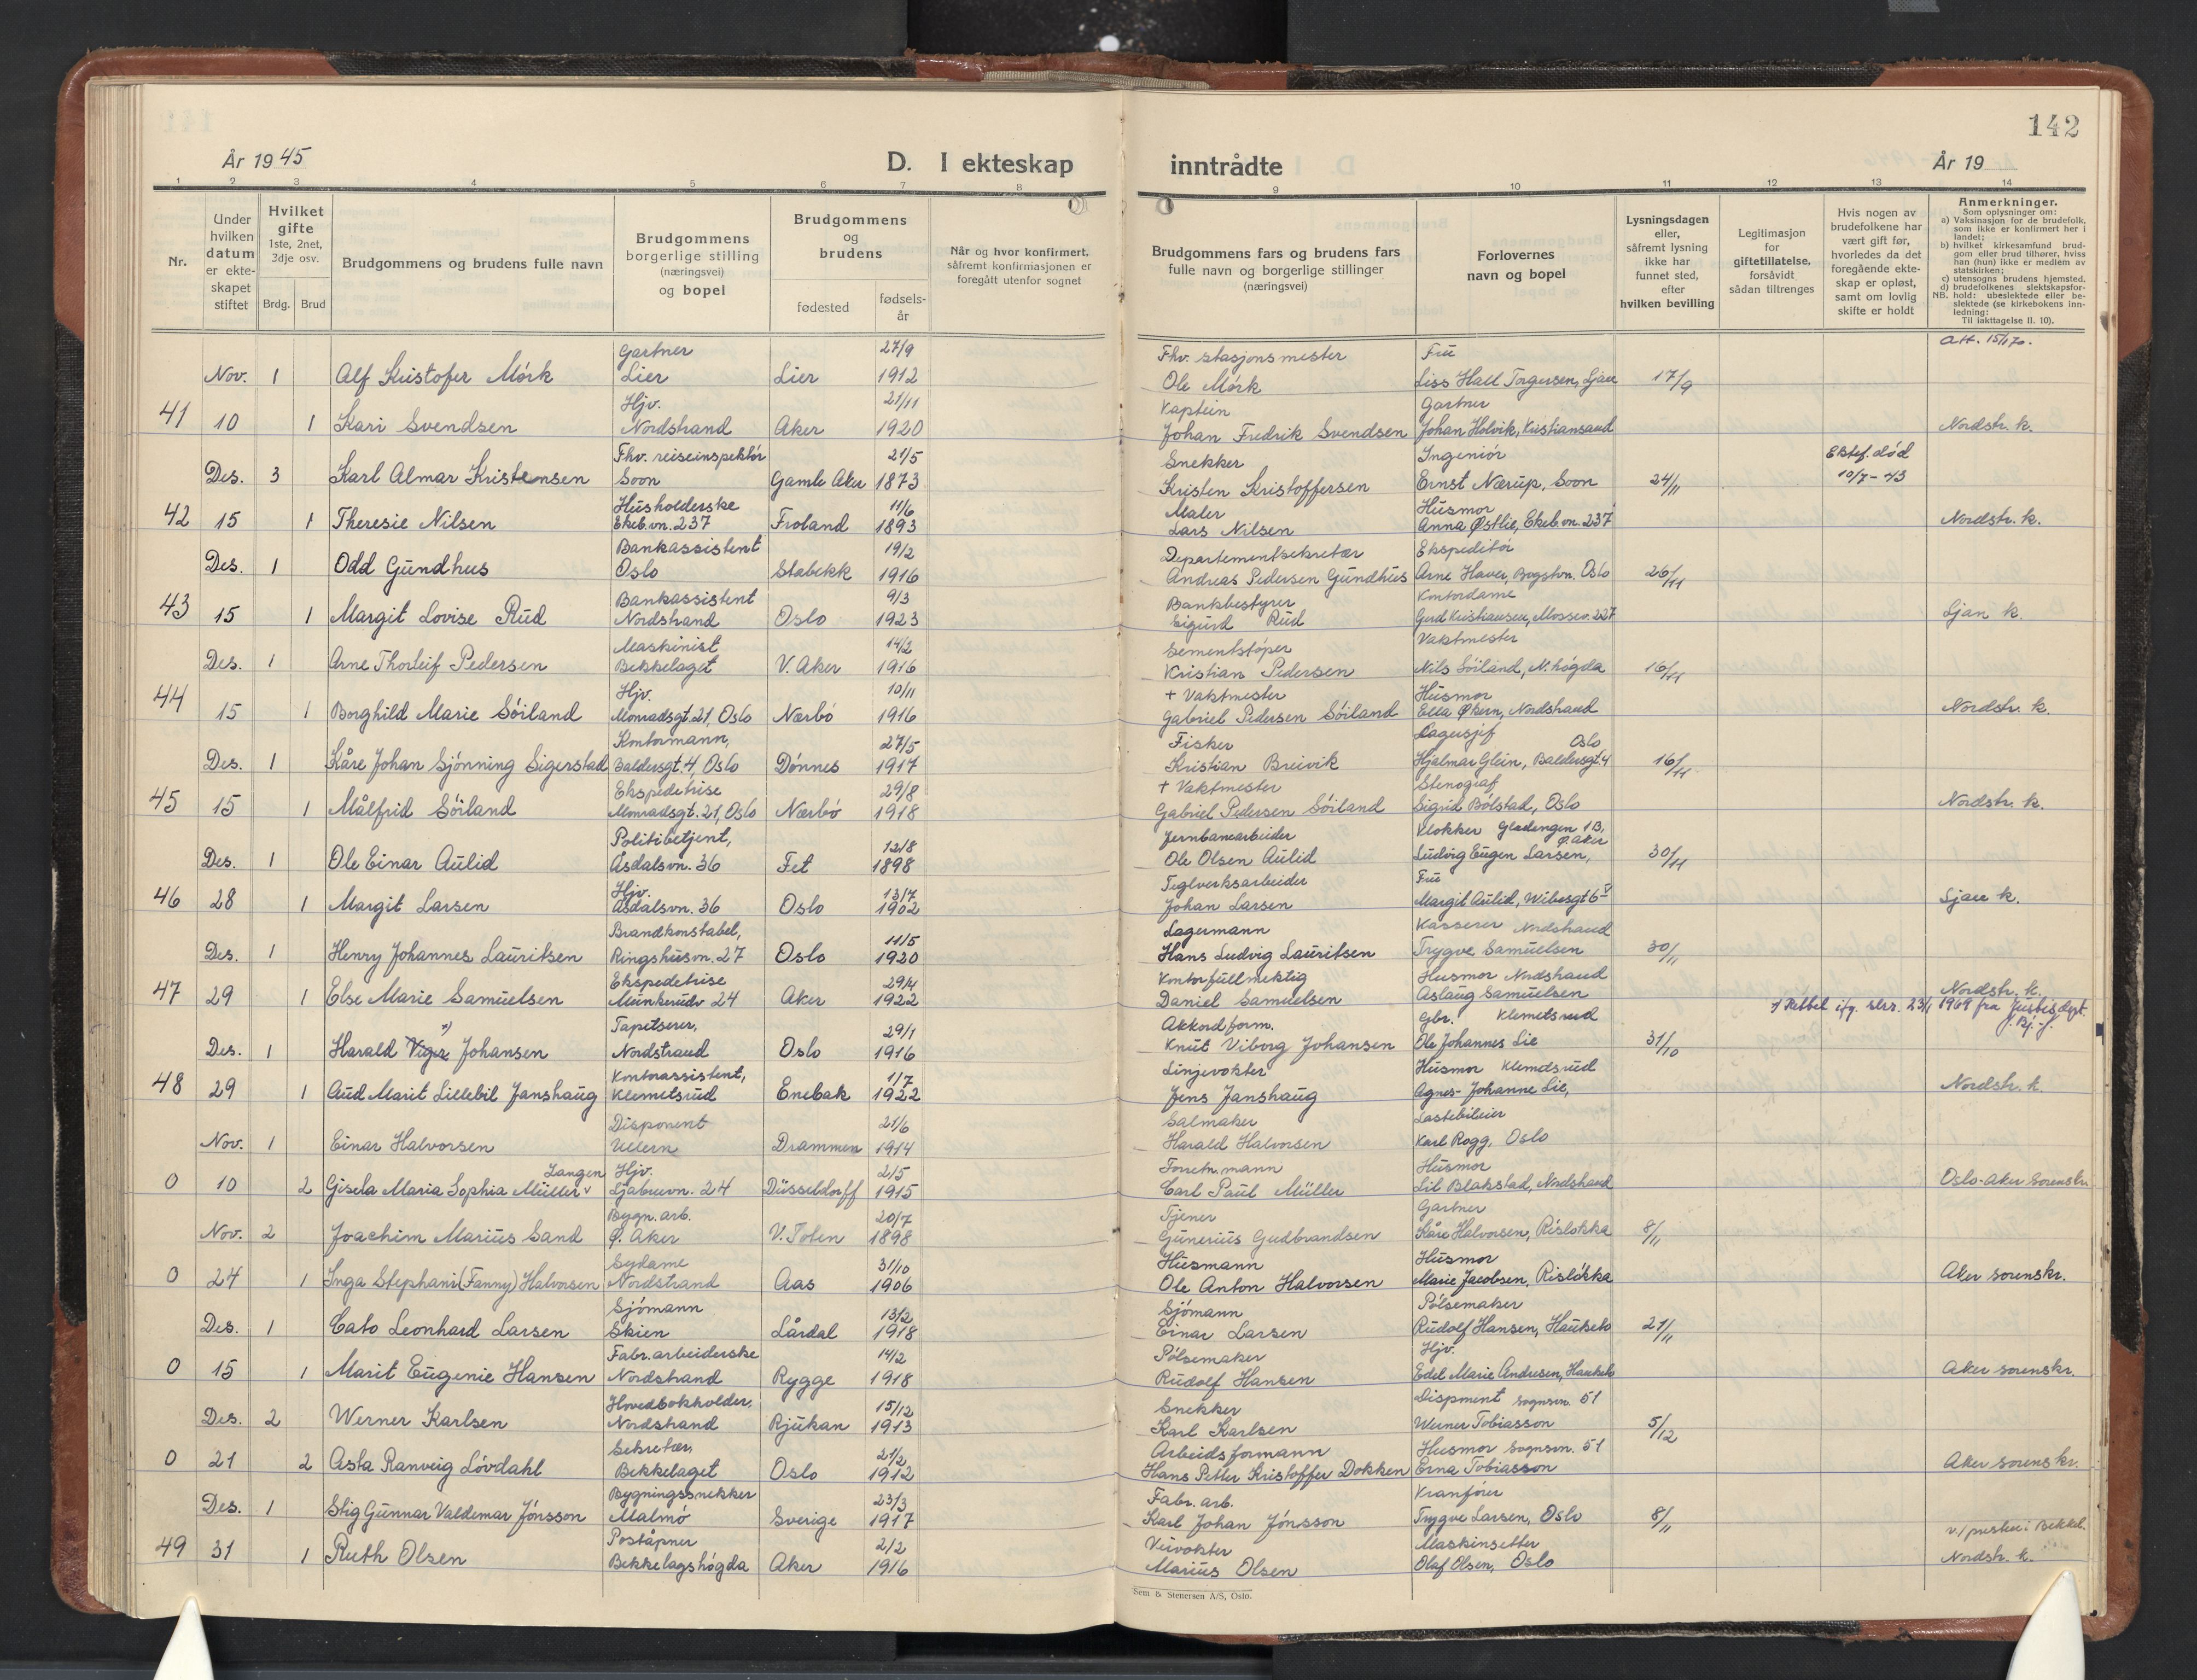 142
År 1945
D. I ekteskap inntrådte
År 19
1 2 3 4 5 6 7 8 9 10 11 12 13 14
Nr.
Under hvilken datum er ekteskapet stiftet
Hvilket gifte 1ste, 2net, 3dje osv.
Brdg. Brud
Brudgommens og brudens fulle navn
Brudgommens borgerlige stilling (næringsvei) og bopel
Brudgommens og brudens
fødested
fødselsår
Når og hvor konfirmert, såfremt konfirmasjonen er foregått utenfor sognet
Brudgommens fars og brudens fars fulle navn og borgerlige stillinger (næringsvei)
Forlovernes navn og bopel
Lysningsdagen eller, såfremt lysning ikke har funnet sted, efter hvilken bevilling
Legitimasjon for giftetillatelse, forsåvidt sådan tiltrenges
Hvis nogen av brudefolkene har vært gift før, hvorledes da det foregående ekteskap er opløst, samt om lovlig skifte er holdt
Anmerkninger.
Som oplysninger om:
a) Vaksinasjon for de brudefolk, som ikke er konfirmert her i landet;
b) hvilket kirkesamfund brudgom eller brud tilhører, hviss han (hun) ikke er medlem av statskirken;
c) utensogns brudens hjemsted.
d) brudefolkenes slektskapsforhold: ubeslektede eller beslektede (se kirkebokens innledning:
NB.
Til iakttagelse II. 10).
Gartner 27/9 Fhv. stasjonsmester Fru Att. 15/1 70.
Nov. 1 Alf Kristofer Mörk Lier Lier 1912 Ole Mörk Liss Hall Torgersen, Ljan 17/9
Hjv. 21/11 Kaptein Gartner
41 10 1 Kari Svendsen Nordstrand Aker 1920 Johan Fredrik Svendsen Johan Holvik, Kristiansand Nordstr. k.
Fhv. reiseinspektör 21/5 Snekker Ingeniör Ektef. död
Des. 3 Karl Almar Kristensen Soon Gamle Aker 1873 Kristen Kristoffersen Ernst Nærup, Soon 24/11 10/7-43
Husholderske 11/6 Maler Husmor
42 15 1 Theresie Nilsen Ekeb.vn. 237 Froland 1893 Lars Nilsen Anna Østlie, Ekeb.vn. 237 Nordstr. k.
Bankassistent 19/2 Departementsekretær Ekspeditör
Des. 1 Odd Gundhus Oslo Stabekk 1916 Andreas Pedersen Gundhus Arne Haver, Bogstvn. Oslo 26/11
Bankassistent 9/3 Bankbestyrer Kontordame
43 15 1 Margit Lovise Rud Nordstrand Oslo 1923 Sigurd Rud Gerd Kristiansen, Mossev. 227 Ljan k.
Maskinist 14/2 Sementstöper Vaktmester
Des. 1 Arne Thorleif Pedersen Bekkelaget V. Aker 1916 Kristian Pedersen Nils Söiland, N. högda 16/11
Hjv. 10/11 + Vaktmester Husmor
44 15 1 Borghild Marie Söiland Monradsgt. 21, Oslo Nærbö 1916 Gabriel Pedersen Söiland Ella Økern, Nordstrand Nordstr. k.
Kontormann, 27/5 Fisker Lagersjef Oslo
Des. 1 Kåre Johan Sjönning Sigerstad Baldersgt. 4, Oslo Dönnes 1917 Kristian Breivik Hjalmar Glein, Baldersgt. 4 16/11
Ekspeditrise 29/8 + Vaktmester Stenograf
45 15 1 Målfrid Söiland Monradsgt. 21, Oslo Nærbö 1918 Gabriel Pedersen Söiland Sigrid Bölstad, Oslo Nordstr. k.
Politibetjent, 12/8 Jernbanearbeider Klokker Gladengen 1B, Ø. Aker
Des. 1 Ole Einar Aulid Åsdalsvn. 36 Fet 1898 Ole Olsen Aulid Ludvig Eugen Larsen, 30/11
Hjv. 13/7 Teglverksarbeider Fru
46 28 1 Margit Larsen Åsdalsvn. 36 Oslo 1902 Johan Larsen Margit Aulid, Wibesgt 6 Ljan k.
Brandkonstabel, 11/5 Lagermann Kasserer Nordstrand
Des. 1 Henry Johannes Lauritsen Ringshusvn. 27 Oslo 1920 Hans Ludvig Lauritsen Trygve Samuelsen 30/11
Ekspeditrise 29/4 Kontorfullmektig Husmor Nordstrand
47 29 1 Else Marie Samuelsen Munkerudv 24 Aker 1922 Daniel Samuelsen Aslaug Samuelsen Nordstr. k.
x) Rettet iflg. skr. 23/1 1969 fra Justisdept.
x) Tapetserer, 29/1 Akkordform. Gbr. Klemetsrud
Des. 1 Harald Viger Johansen Nordstrand Oslo 1916 Knut Viborg Johansen Ole Johannes Lie 31/10
Kontorassistent, 1/7 Linjevokter Husmor Klemetsrud
48 29 1 Aud Marit Lillebil Janshaug Klemetsrud Enebak 1922 Jens Janshaug Agnes Johanne Lie, Nordstr. k.
Disponent 21/6 Salmaker Lastebileier
Nov. 1 Einar Halvorsen Ullern Drammen 1914 Harald Halvorsen Karl Rogg, Oslo
Langen Hjv. 2/5 Forretn.mann Husmor
0 10 2 Gisela Maria Sophia Müller Ljabruvn. 24 Düsseldorff 1915 Carl Paul Müller Lil Blakstad, Nordstrand Oslo-Aker sorenskr.
Bygn. arb. 20/7 Tjener Gartner
Nov. 2 Joachim Marius Sand Ø. Aker V. Toten 1898 Gunerius Gudbrandsen Kåre Halvorsen, Rislökka 8/11
Sydame 31/10 Husmann Husmor
0 24 1 Inga Stephani (Fanny) Halvorsen Nordstrand Aas 1906 Ole Anton Halvorsen Marie Jacobsen, Rislökka Aker sorenskr.
Sjömann 13/2 Sjömann Pölsemaker
Des. 1 Cato Leonhard Larsen Skien Lårdal 1918 Einar Larsen Rudolf Hansen, Hauketo 21/11
Fabr.arbeiderske 14/2 Pölsemaker Hjv.
0 15 1 Marit Eugenie Hansen Nordstrand Rygge 1918 Rudolf Hansen Edel Marie Andresen, Hauketo Aker sorenskr.
Hovedbokholder, 15/12 Snekker Disponent Sognsvn. 51
Des. 2 Werner Karlsen Nordstrand Rjukan 1913 Karl Karlsen Werner Tobiasson 5/12
Sekretær, 21/2 Arbeidsformann Husmor Sognsvn. 51
0 21 2 Asta Ranveig Lövdahl Bekkelaget Oslo 1912 Hans Petter Kristoffer Dokken Erna Tobiasson Aker sorenskr.
Bygningssnekker 23/3 Fabr. arb. Kranförer
Des. 1 Stig Gunnar Valdemar Jönsson Malmö Sverige 1917 Karl Johan Jönsson Trygve Larsen, Oslo 8/11
Poståpner 2/2 Veivokter Maskinsetter v/ presten i Bekkel.
49 31 1 Ruth Olsen Bekkelagshögda Aker 1916 Marius Olsen Olaf Olsen, Oslo Nordstr. k.
Sem & Stenersen A/S, Oslo.